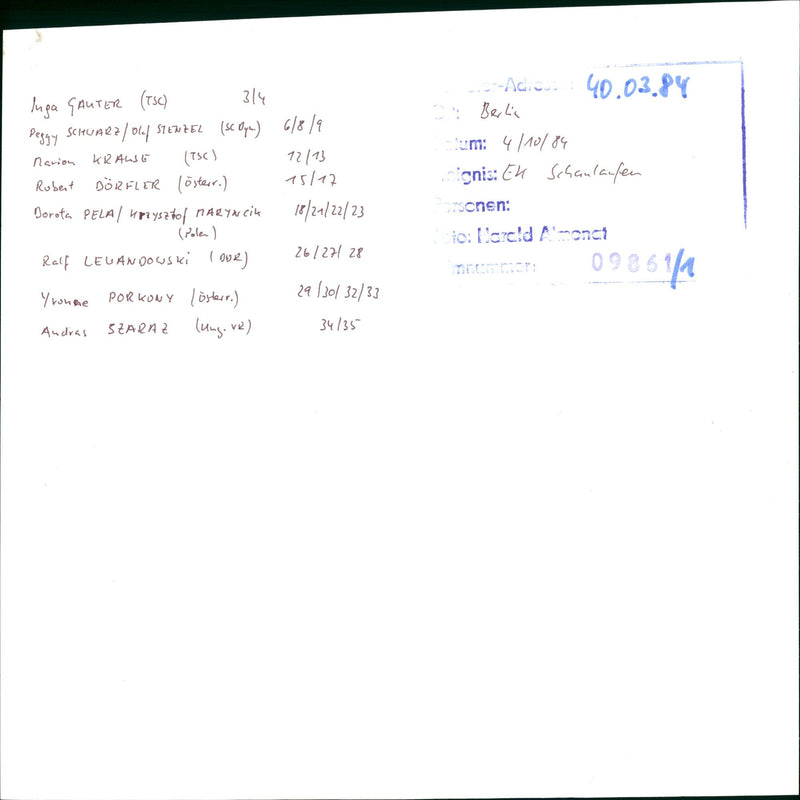 Inga GAUTER (TSC) 3/4
Peggy SCHWARZ/Olaf STENZEL (SC Dyn.) 6/8/9
Marion KRAUSE (TSC) 12/13
Robert DÖRFLER (Österr.) 15/17
Dorota PELA/ Krzysztof MARYNCIK 18/21/22/23
(Polen)
Ralf LEWANDOWSKI (DDR) 26/27/28
Yvonne PORKONY (Österr.) 29/30/32/33
Andras SZARAZ (Ung. VR) 34/35
-Adress 40.03.84
Berlin
tum: 4/10/84
ignis: EK Schaulaufen
ersonen:
oto: Harald Almonat
mnummer: 09861/1